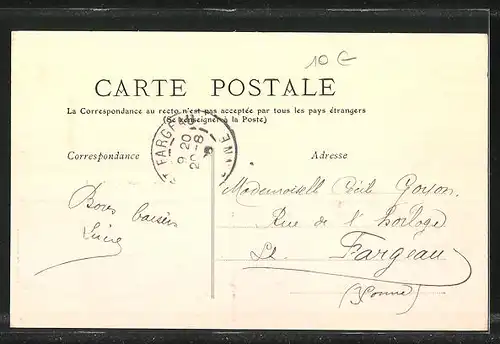 10 €
CARTE POSTALE
La Correspondance au recto n'est pas acceptée par tous les pays étrangers
(Se renseigner à la Poste)
FARGEAU
9 20
20-8
NNE
Correspondance
Adresse
Bons baisers
Lucie
Mademoiselle
Rue de l'horloge
St Fargeau
(Yonne)